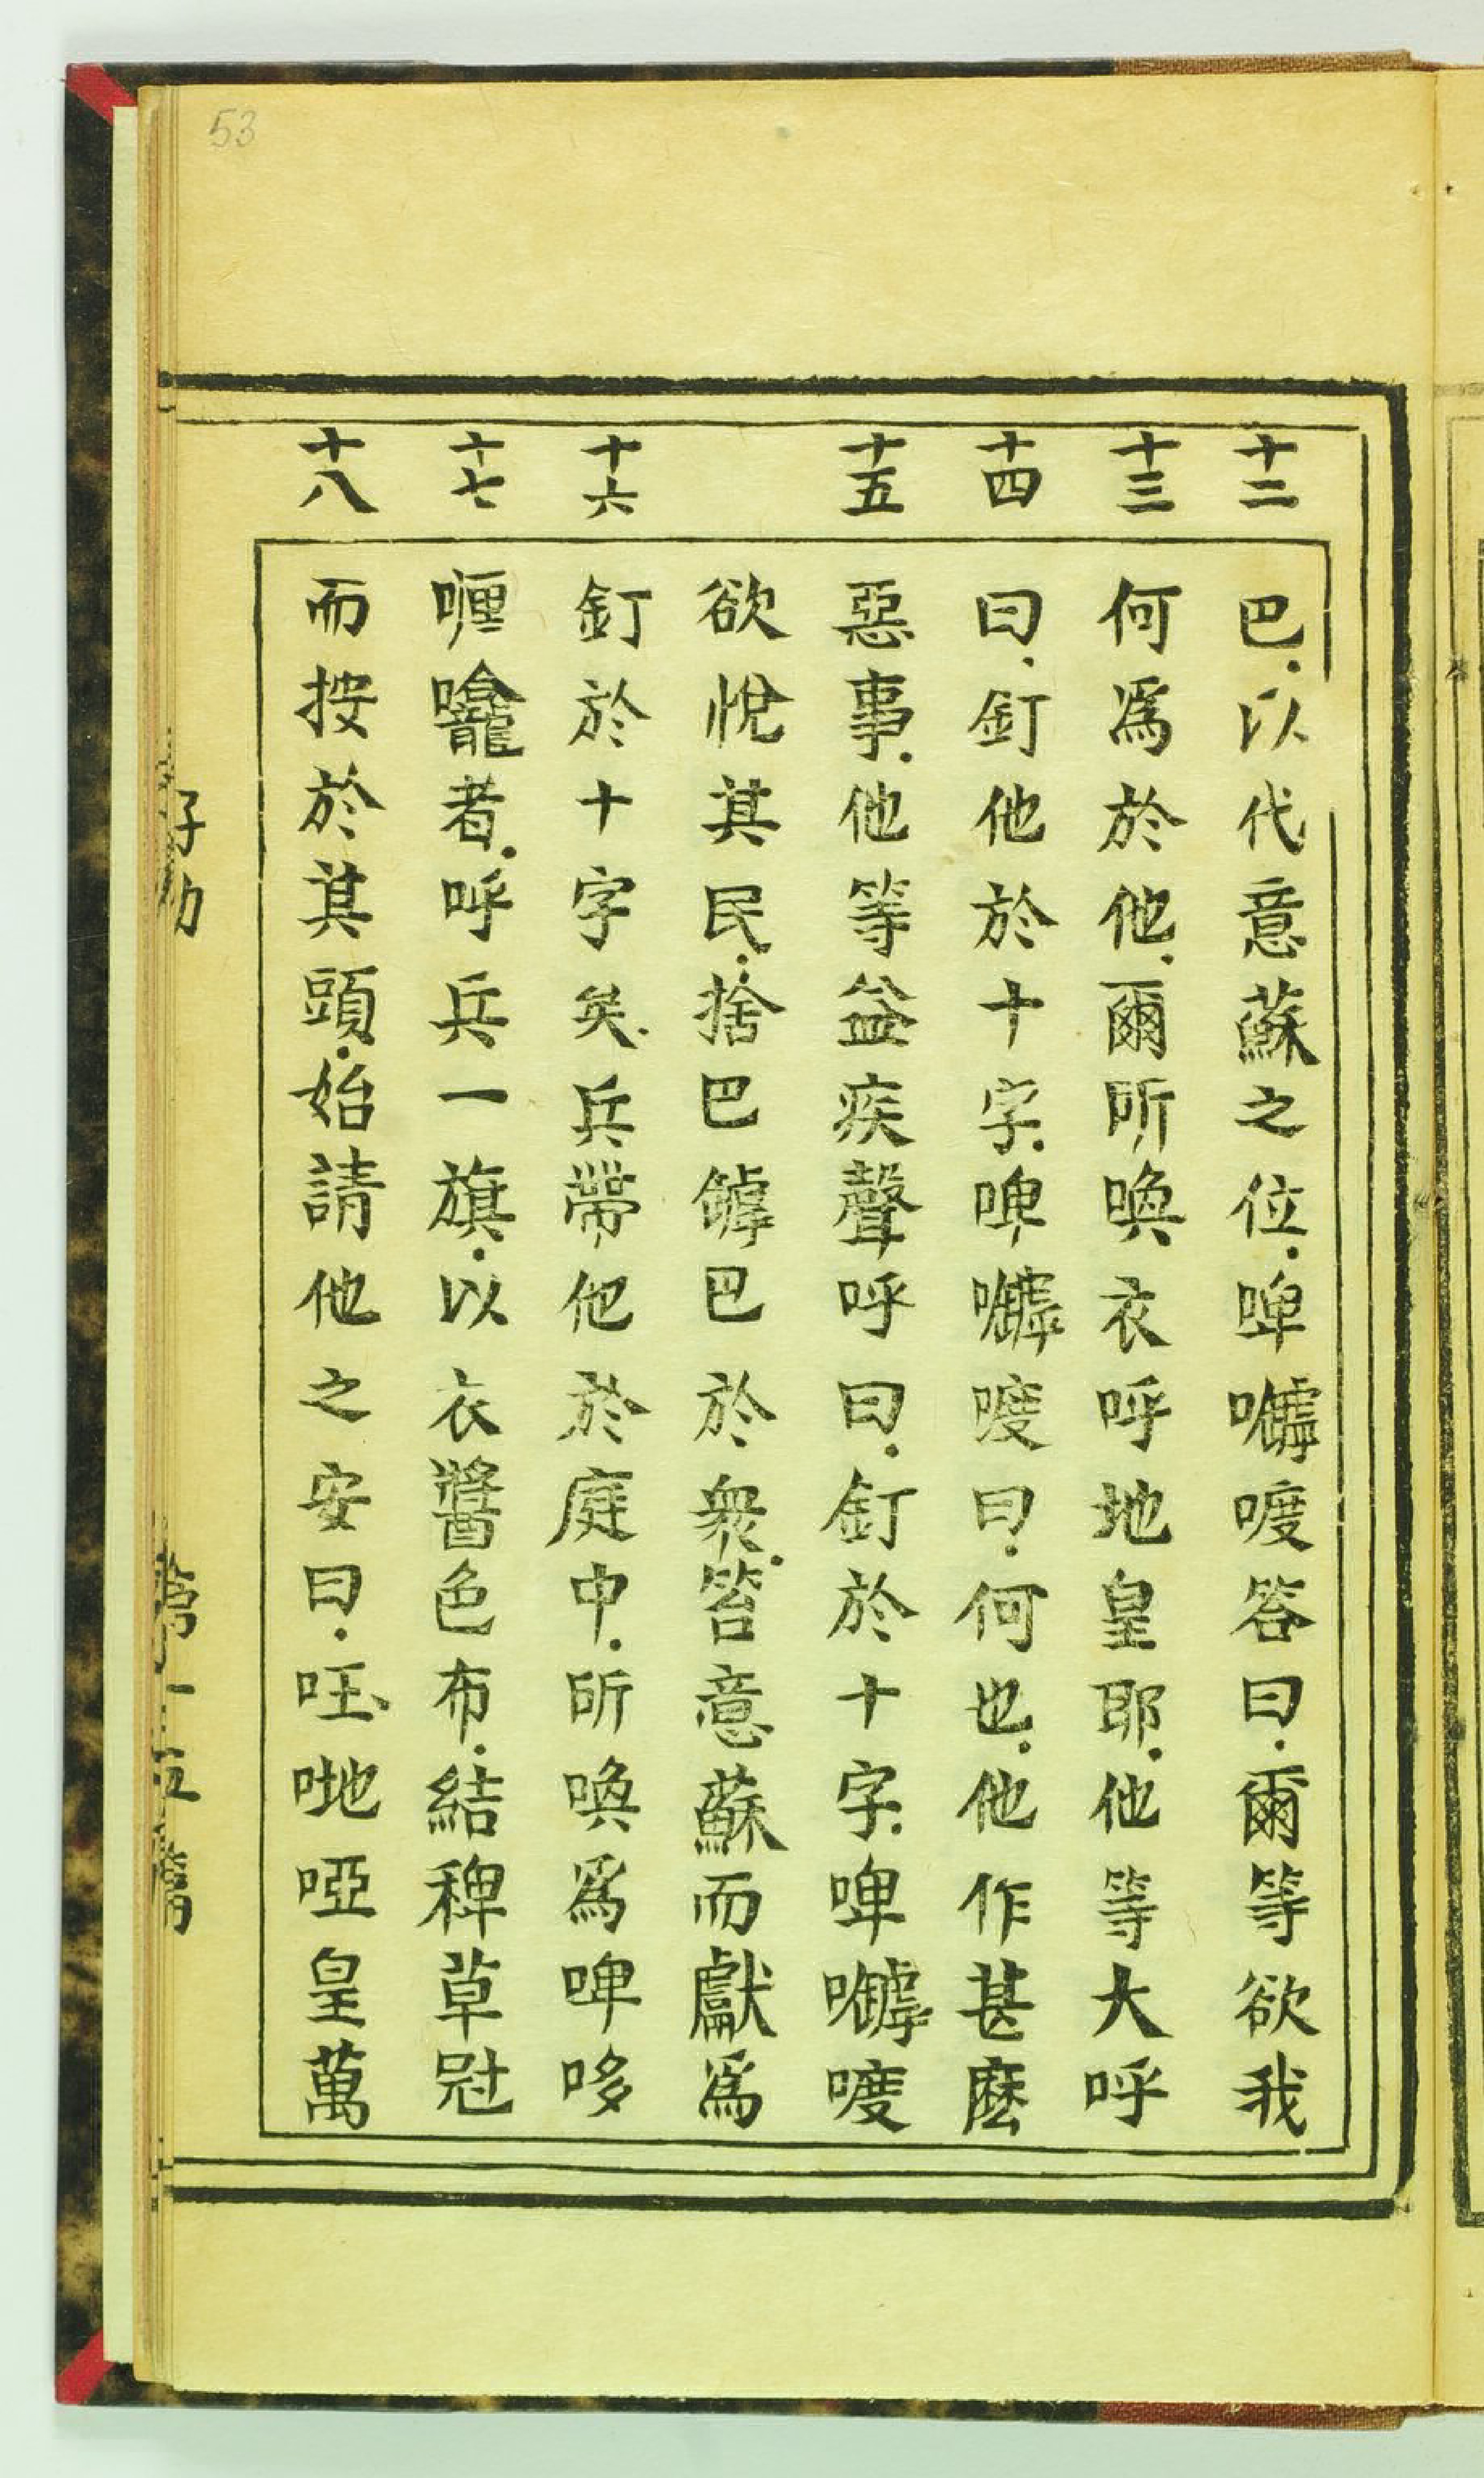 53
十二 十三 十四 十五 十六 十七 十八
巴．以代意蘇之位．啤𡃤喥答曰．爾等欲我
何爲於他．爾所喚衣呼地皇耶．他等大呼
曰．釘他於十字．啤𡃤喥曰．何也．他作甚麽
惡事．他等益疾聲呼曰．釘於十字．啤𡃤喥
欲悅其民．捨巴罅巴於衆．笞意蘇而獻爲
釘於十字矣．兵帶他於庭中．所喚爲啤哆
喱龕者．呼兵一旗．以衣醬色布．結稗草冠
而按於其頭．始請他之安曰．㕵哋啞皇萬